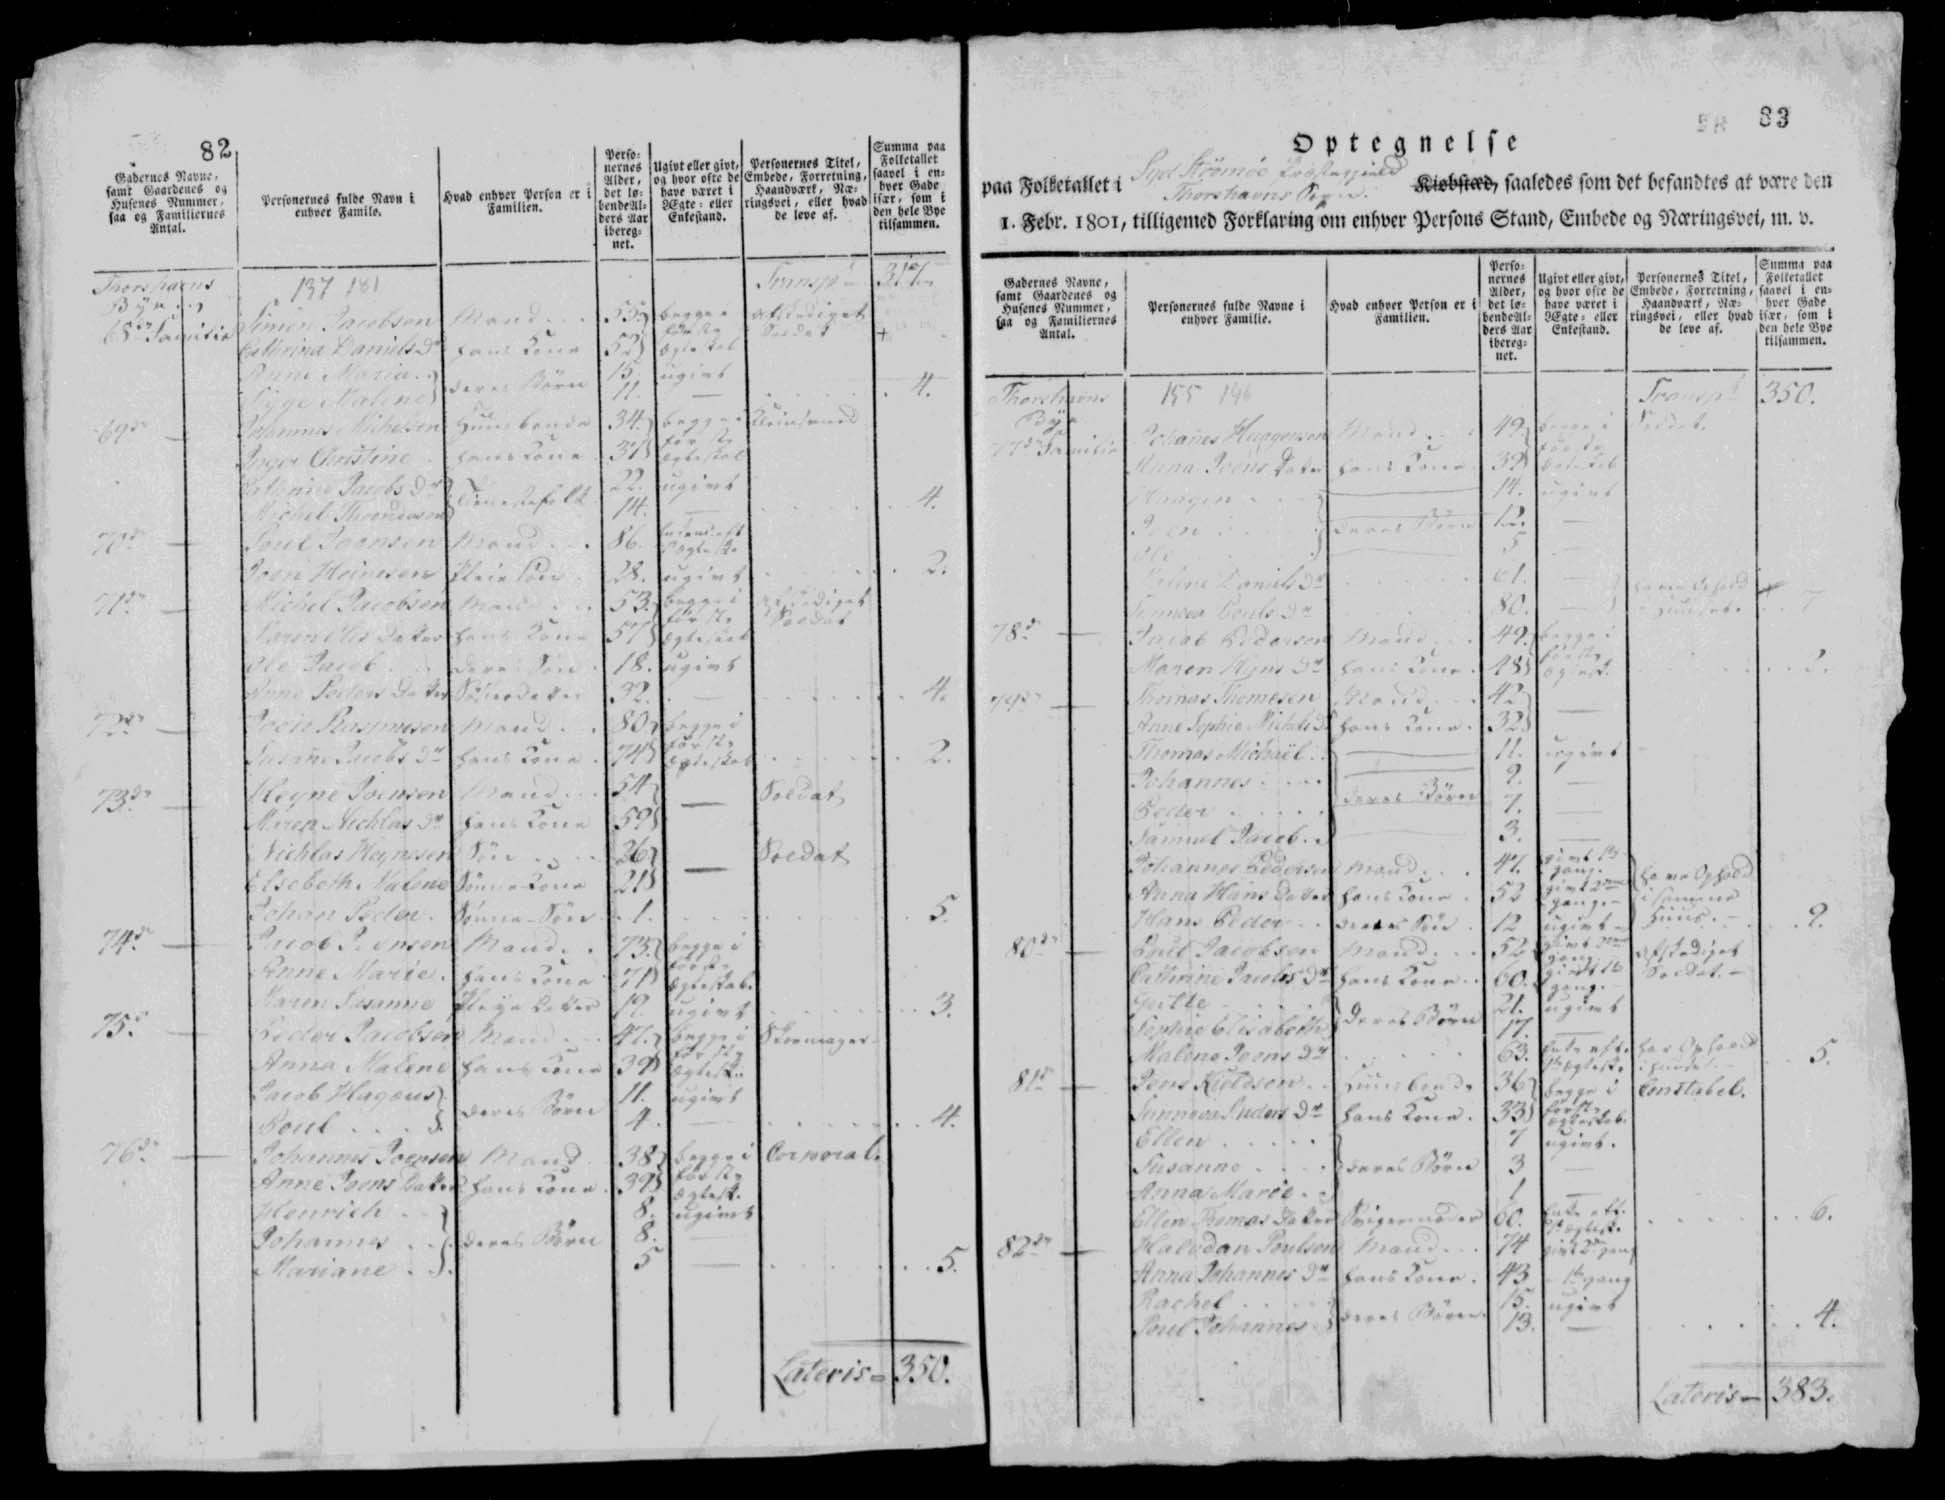 82
Gadernes Navne, samt Gaardenes og Husenes Nummer, saa og Familiernes Antal.
Personernes fulde Navn i enhver Familie.
Hvad enhver Person er i Familien.
Personernes Alder, det løbende Alders Aar iberegnet.
Ugivt eller givt, og hvor ofte de have været i Ægte- eller Enkestand.
Personernes Titel, Embede, Forretning, Haandværk, Næringsvei, eller hvad de leve af.
Summa paa Folketallet saavel i enhver Gade især, som i den hele Bye tilsammen.
Thorshavns Bye
137 181
Transpt 317
68de Familie Simon Jacobsen Mand 55 begge i første Ægteskab afskediget Soldat
Cathrina Daniels Dr hans Kone 52
Anne Maria deres Børn 15. ugivt
Malene 11. — 4.
69de Johannes Michelsen Huusbonde 34 begge i første Ægteskab
Inger Christine hans Kone 37
Cathrine Jacobs Dr Tienestefolk 22. ugivt
Michel Thomassen 14. — 4.
70de Poul Joensen Mand 86.
Joen Heinesen Pleie Søn 28. ugivt 2.
71de Michel Jacobsen Mand 53. begge i første Ægteskab afskediget Soldat
Maren Ols Datter hans Kone 57
Ole Jacob deres Søn 18. ugivt
Anne Peders Datter 32. — 4.
72de Joen Rasmussen Mand 80 begge i første Ægteskab
Susanne Jacobs Dr hans Kone 74 2.
73de Heyne Joensen Mand 54 — Soldat
Maren Nichlas Dr hans Kone 59
Nichlas Heynesen Søn 26 — Soldat
Elsebeth Malene Sønne Kone 21
Johan Peder Sønne-Søn 1. 5.
74de Jacob Joensen Mand 73. begge i første Ægteskab
Anne Marie hans Kone 71
Maren Susanne Pleye Datter 19. ugivt 3.
75de Peder Jacobsen Mand 47. begge i første Ægtesk. Skoemager
Anna Malene hans Kone 39
Jacob Hagens deres Børn 11. ugivt
Poul 4. — 4.
76de Johannes Joensen Mand 38 begge i første Ægtesk. Corporal.
Anne Joens Datter hans Kone 39
Henrich 8. ugivt
Johannes deres Børn 8. —
Mariane 5 — 5.
Lateris = 350.
83
Optegnelse
paa Folketallet i Syd Strömöe Præstegield Thorshavns Sogn Kiøbstæd, saaledes som det befandtes at være den
1. Febr. 1801, tilligemed Forklaring om enhver Persons Stand, Embede og Næringsvei, m. v.
Gadernes Navne, samt Gaardenes og Husenes Nummer, saa og Familiernes Antal.
Personernes fulde Navne i enhver Familie.
Hvad enhver Person er i Familien.
Personernes Alder, det løbende Alders Aar iberegnet.
Ugivt eller givt, og hvor ofte de have været i Ægte- eller Enkestand.
Personernes Titel, Embede, Forretning, Haandværk, Næringsvei, eller hvad de leve af.
Summa paa Folketallet saavel i enhver Gade især, som i den hele Bye tilsammen.
Thorshavns Bye
155 196
Transpt 350.
77de Familie Johannes Haagensen Mand 49 begge i første Ægteskab Soldat
Anna Joens Datter hans Kone 39
Haagen 14. ugivt
Joen deres Børn 12. —
Ole 5 —
Malene Daniels Dr 61. — have Ophold i Huuset. 7
Sunneva Pouls Dr 80. —
78de Jacob Pedersen Mand 49. begge i første Ægtesk.
Maren Dr hans Kone 48 2.
79de Thomas Thomesen Mand 42 —
Anne Sophie Michels Dr hans Kone 32
Thomas Michaël 11. ugivt
Johannes 9. —
Peder deres Børn 7. —
Samuel Jacob 3. —
Johannes Pedersen Mand 47. givt 1te gang have Ophold i samme Huus.
Anna Hans Datter hans Kone 52 givt 2den gang
Hans Peder deres Søn 12 ugivt 9.
80de Poul Jacobsen Mand 52 givt 2den gang afskediget Soldat.
Cathrine Jacobs Dr hans Kone 60. givt 1te gang
Gitte deres Børn 21. ugivt
Sophie Elisabeth 17. —
Malene Joens Dr 63. Enke eft. 1te Ægtesk. har Ophold i huuset. 5.
81de Jens Huusbonde 36 begge i første Ægteskab. Constabel.
Sunneva Dr hans Kone 33
Ellen 7 ugivt.
Susanne deres Børn 3 —
Anna Marie 1 —
Ellen Thomas Datter Svigermoder 60. Enke eft. Ægtesk. 6.
82de Halvdan Poulsen Mand 74 givt 2den gang
Anna Johannes Dr hans Kone 43 1te gang
Rachel deres Børn 15. ugivt
Poul Johannes 13. — 4.
Lateris — 383.